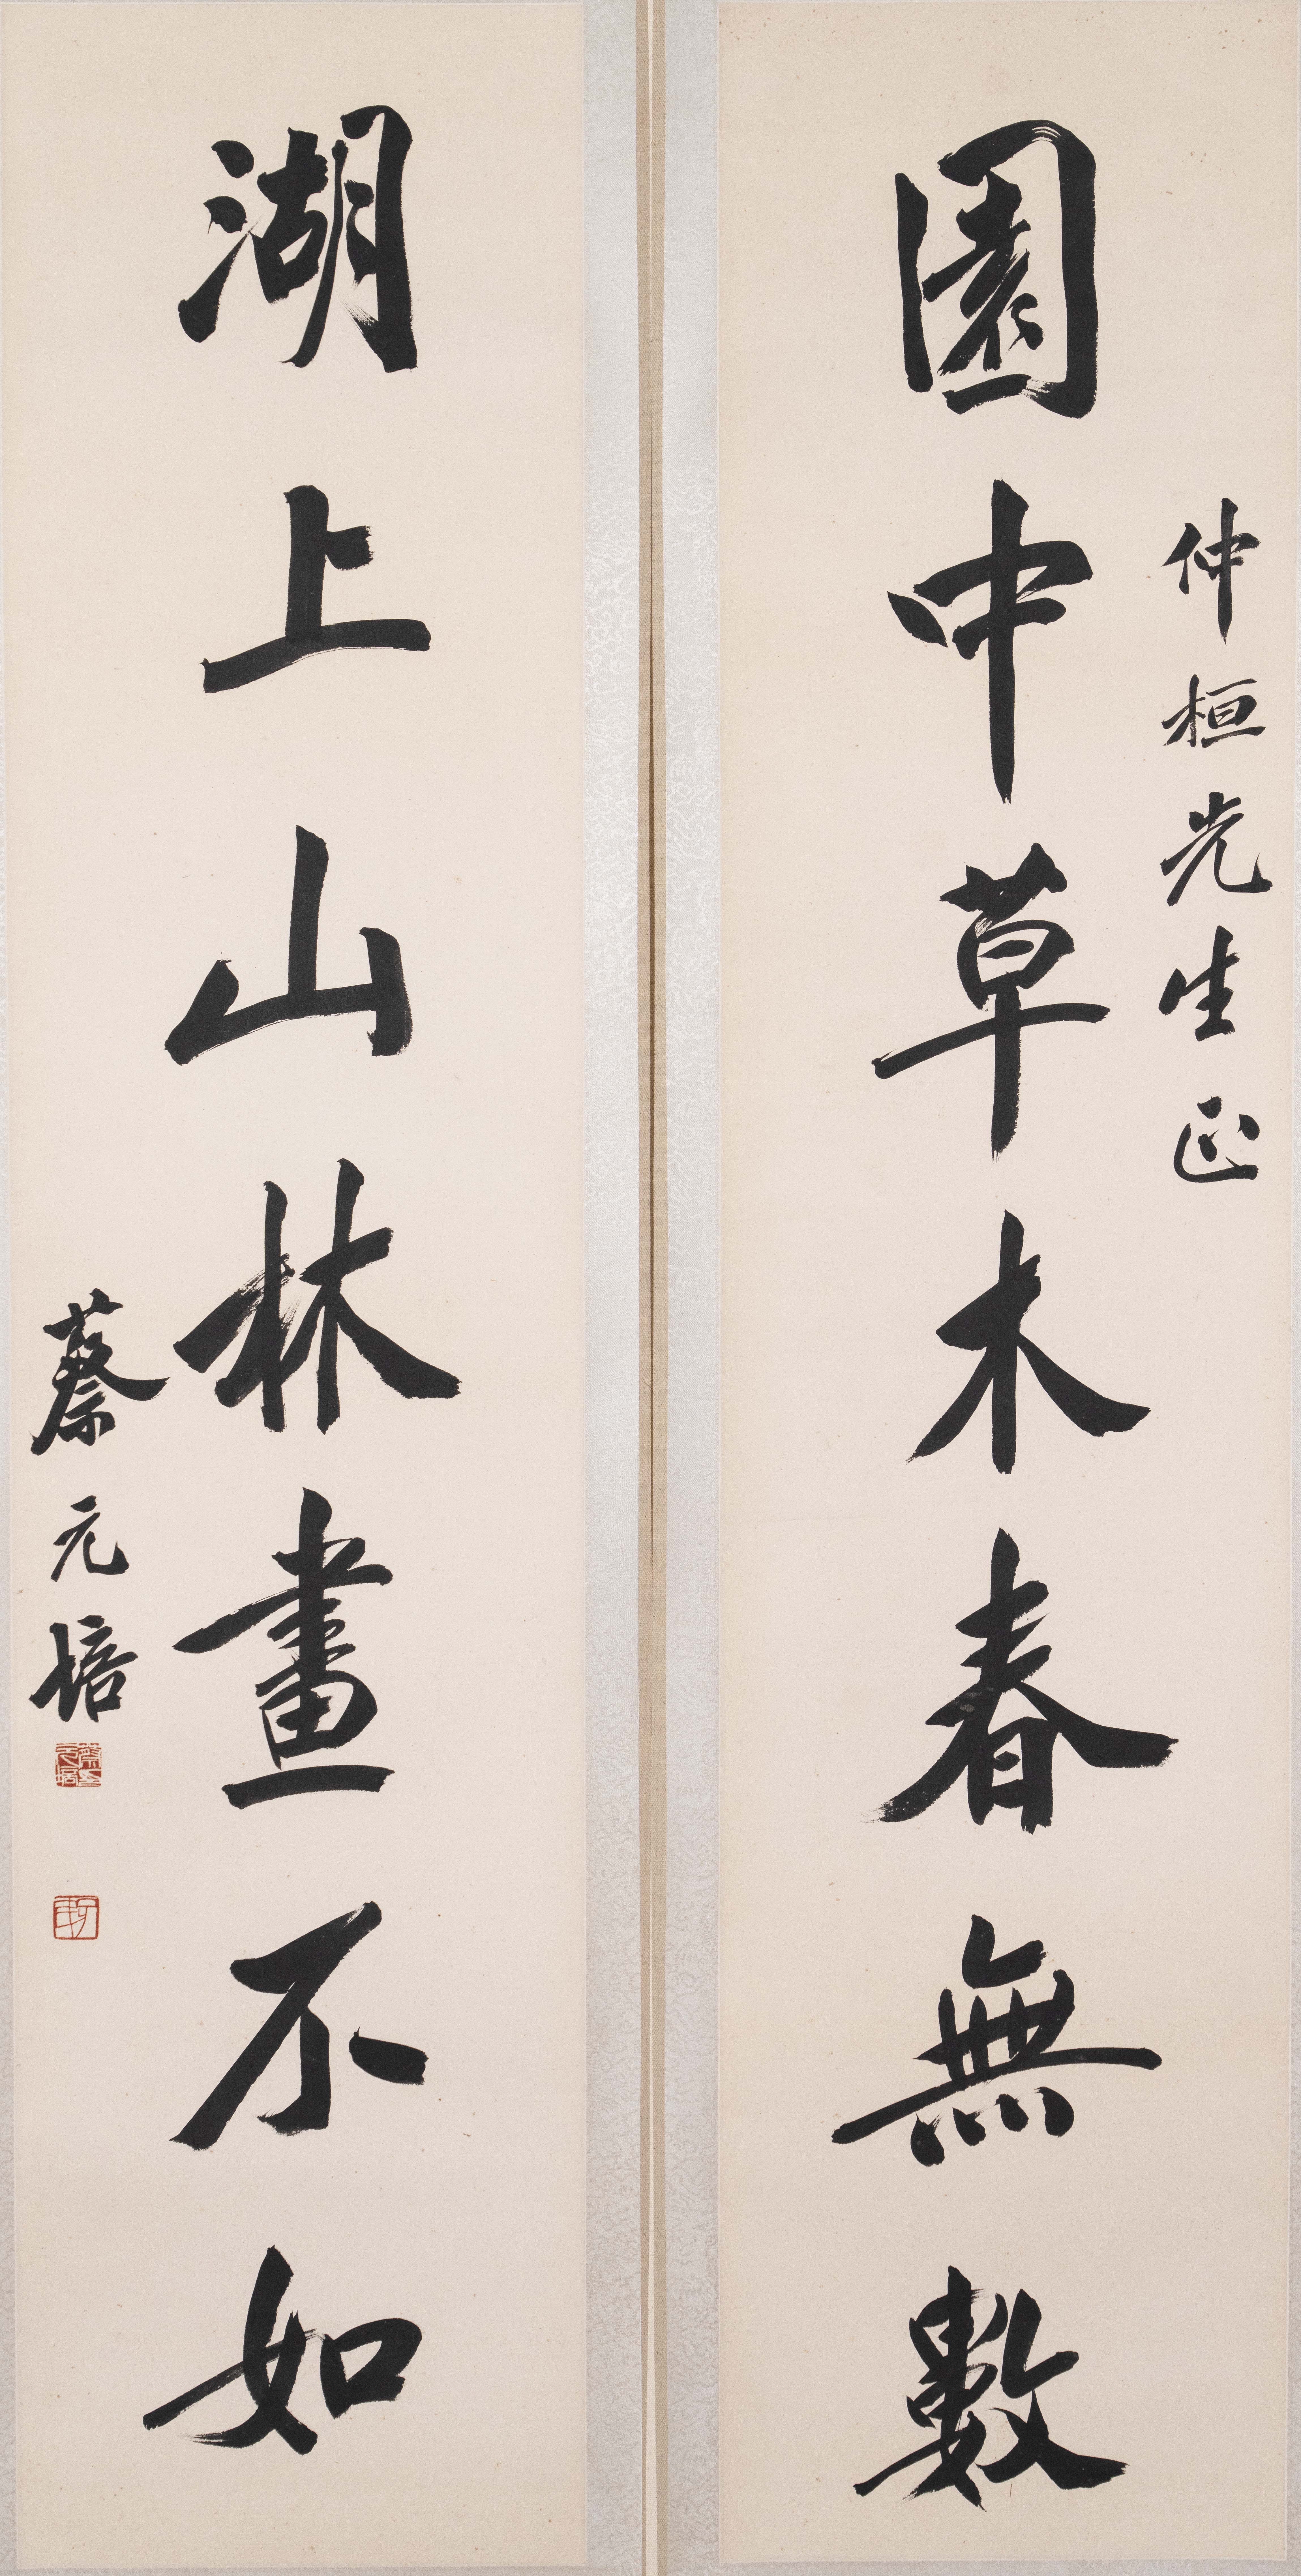 仲桓先生正
園中草木春無數
湖上山林畫不如
蔡元培